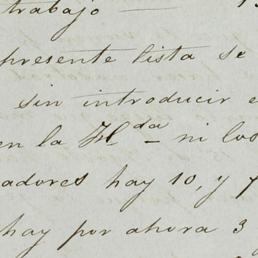 trabajo
presente lista se
sin introducir e
en la H.da – ni los
adores hay 10, y 7
hay por ahora 3